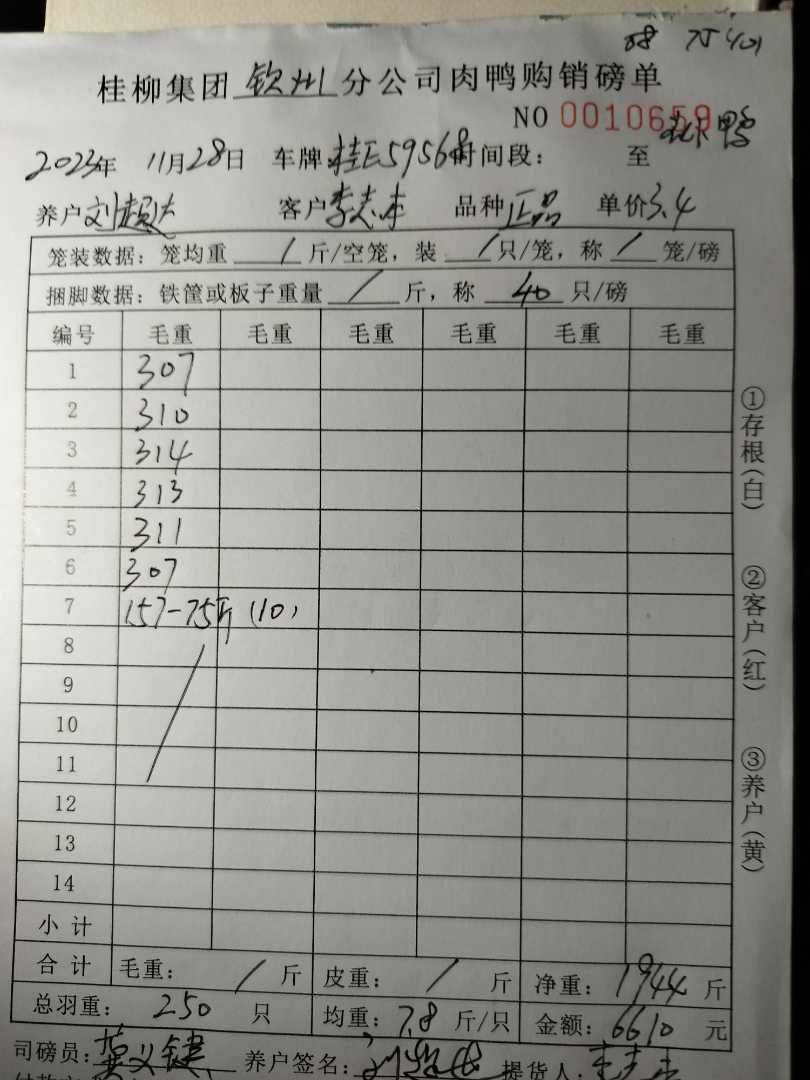 桂柳集团钦州分公司肉鸭购销磅单
NO 0010659
2023年 11月28日 车牌:桂E59568 时间段: 至
养户 刘超达 客户 李志本 品种 正品 单价3.4
笼装数据: 笼均重 / 斤/空笼, 装 / 只/笼, 称 / 笼/磅
捆脚数据: 铁筐或板子重量 / 斤, 称 40 只/磅
编号 毛重 毛重 毛重 毛重 毛重 毛重
1 307
2 310
3 314
4 313
5 311
6 307
7 157-75斤 (10)
8
9
10
11
12
13
14
小计
合计 毛重: / 斤 皮重: / 斤 净重: 1944 斤
总羽重: 250 只 均重: 7.8 斤/只 金额: 6610 元
司磅员: 养户签名: 提货人:
①存根(白)
②客户(红)
③养户(黄)